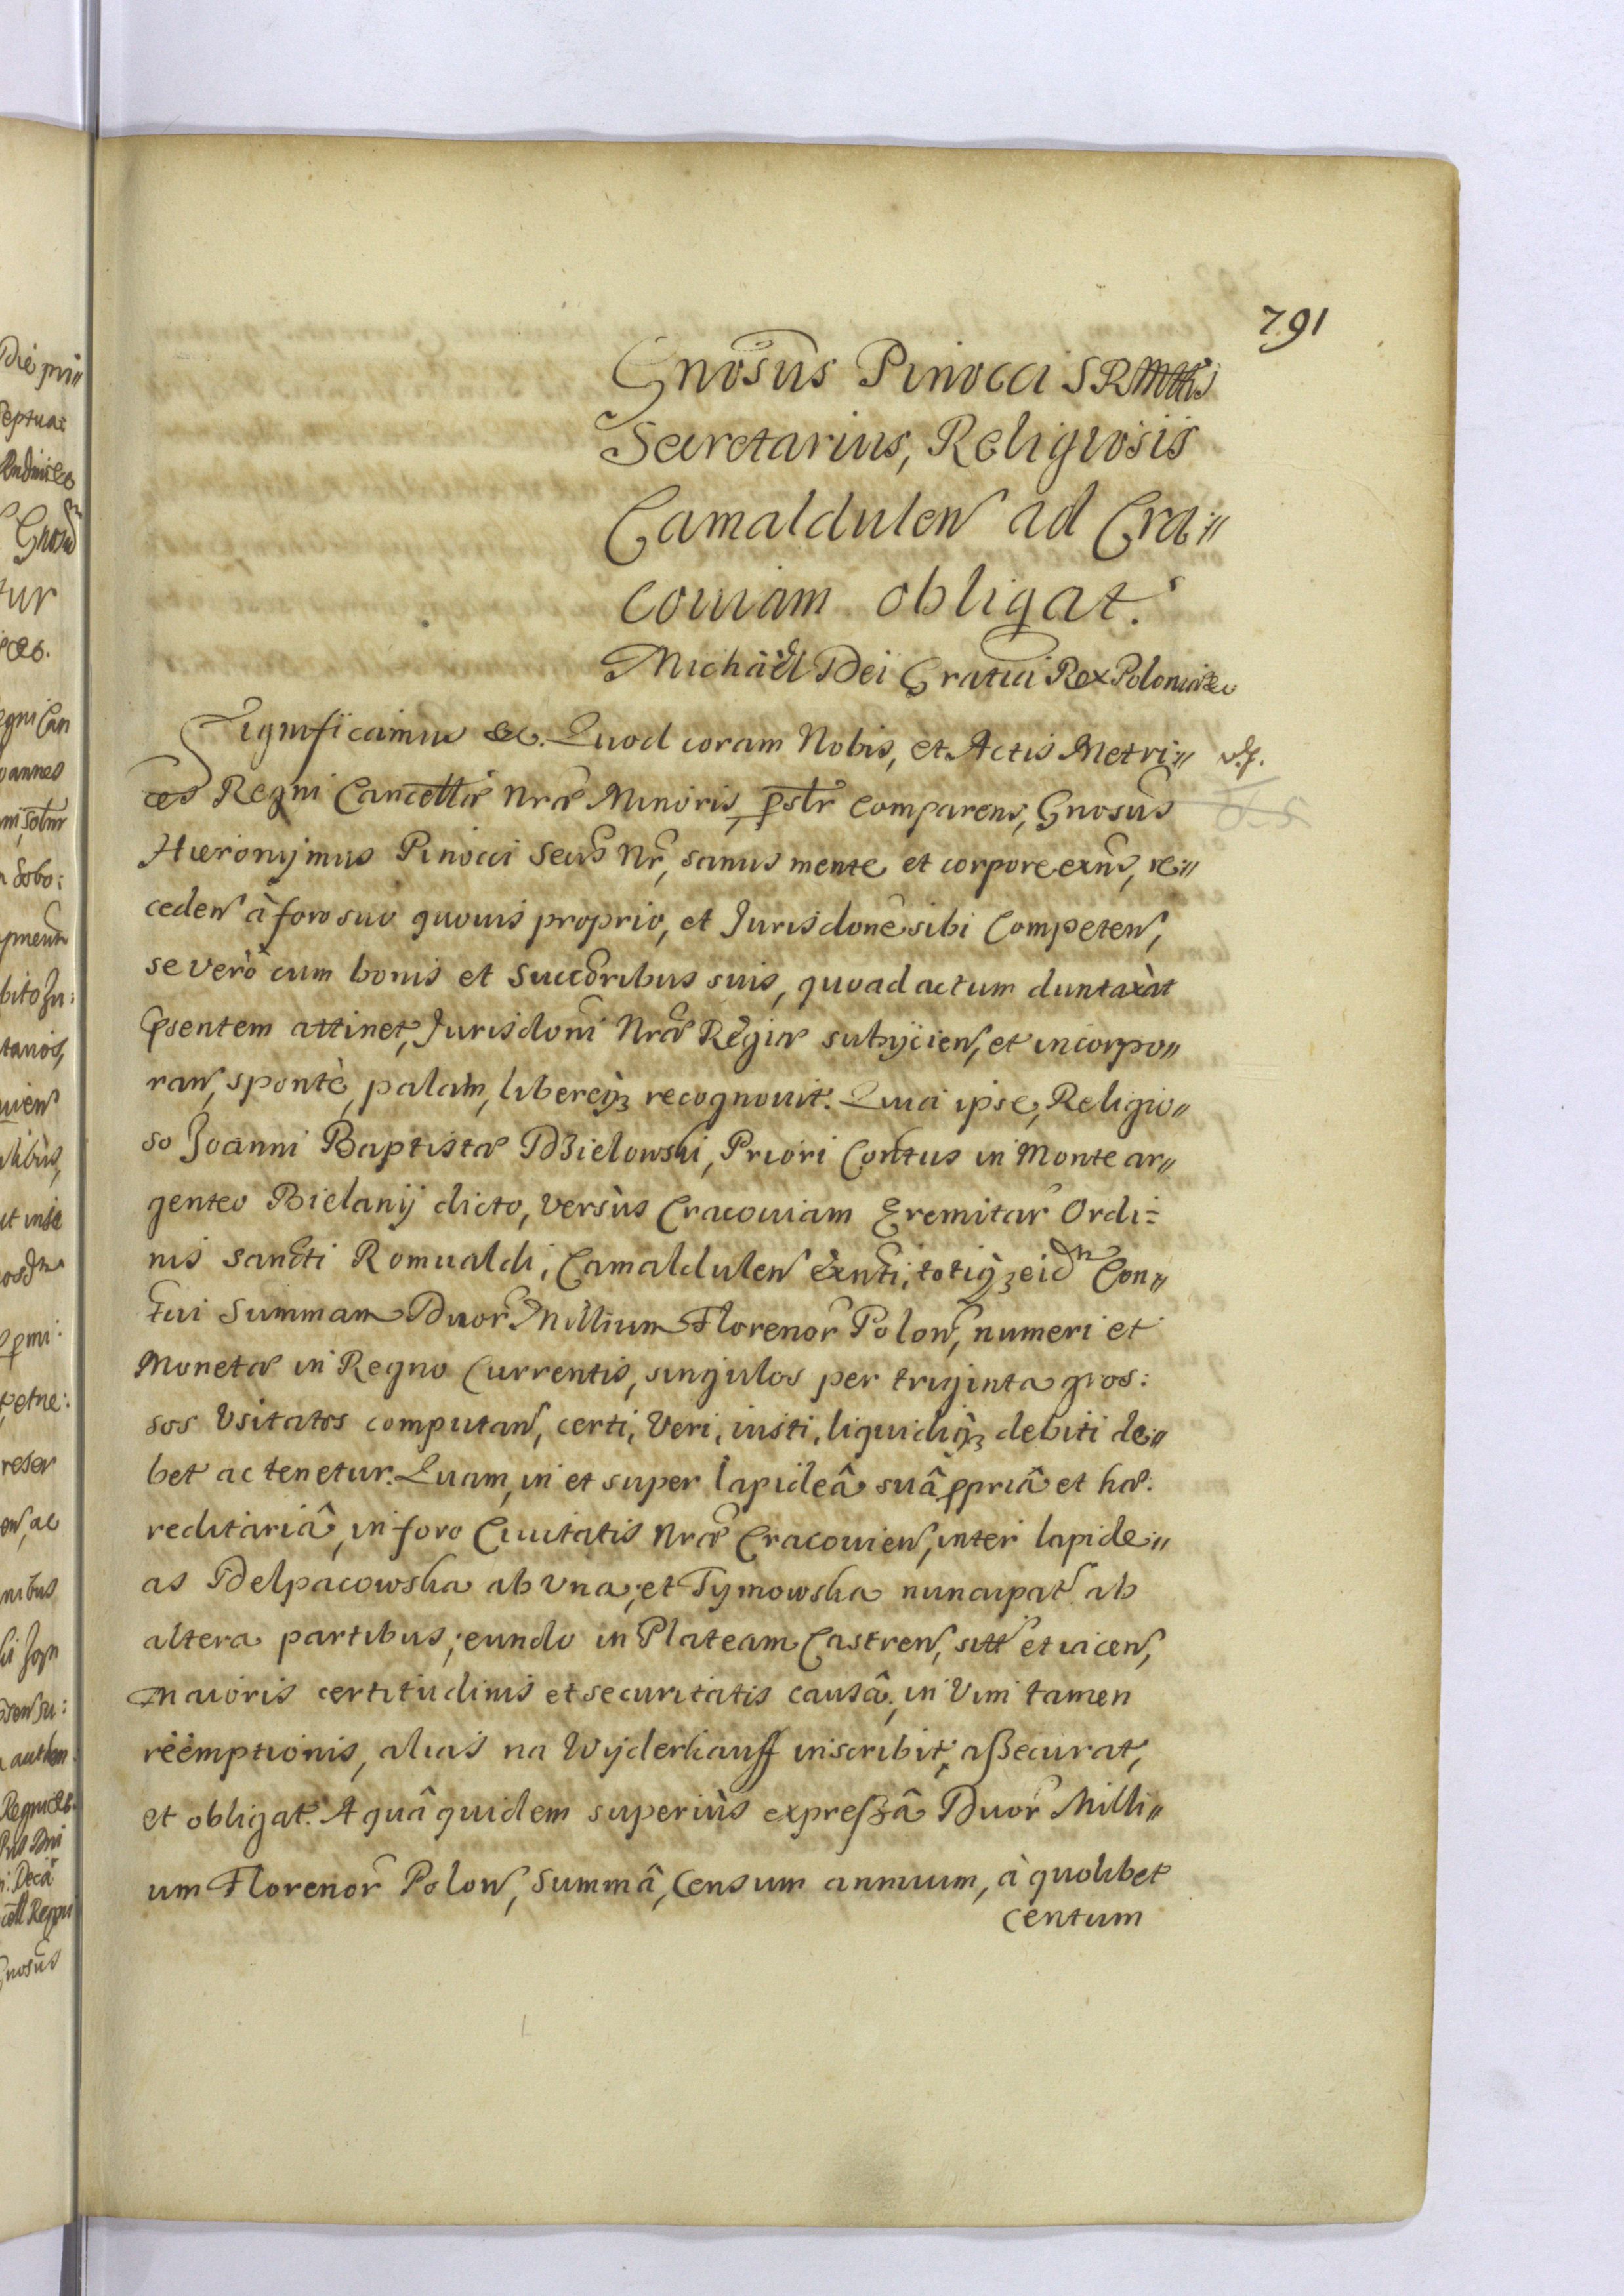 791
Gnosus Pinocci SRMttis
Secretarius, Religiosis
Camaldulen ad Cra〃
couiam obligat.
Michaël Dei Gratia Rex Poloniæ &c
Significamus &c. Quod coram Nobis, et Actis Metri〃
ces Regni Cancellæ Nræ Minoris, pstr comparens, Gnosus
Hieronymus Pinocci Secrs Nr, sanus mente et corpore exns, re〃
ceden à foro suo quouis proprio, et Jurisdone sibi Competen,
se verò cum bonis et Succoribus suis, quoad actum duntaxàt
psentem attinet, Jurisdoni Nræ Regiæ subijcien, et incorpo〃
ran, spontè, palàm, libereq3 recognouit. Quia ipse, Religio〃
so Joanni Baptistæ Dzielowski, Priori Contus in Monte ar〃
genteo Bielanij dicto, versùs Cracouiam Eremitar Ordi=
nis sancti Romualdi, Camaldulen exnti, totiq3 eidm Con〃
tui Summam Duor Millium Florenor Polon, numeri et
Monetæ in Regno Currentis, singulos per triginta gros:
sos Vsitatos computan, certi, Veri, iusti, liquidiq3 debiti de〃
bet ac tenetur. Quam, in et super lapideâ suâ ppriâ et hæ:
reditariâ, in foro Ciuitatis Nræ Cracouien, inter lapide〃
as Delpacowska ab vna, et Tymowska nuncupat ab
altera partibus, eundo in Plateam Castren, sitt et iacen,
maioris certitudinis et securitatis causâ, in Vim tamen
rëemptionis, alias na Wyderkauff inscribit, aßecurat,
et obligat. A quâ quidem superiùs expreßâ Duor Milli〃
um Florenor Polon, Summâ, Censum annuum, à quolibet
centum